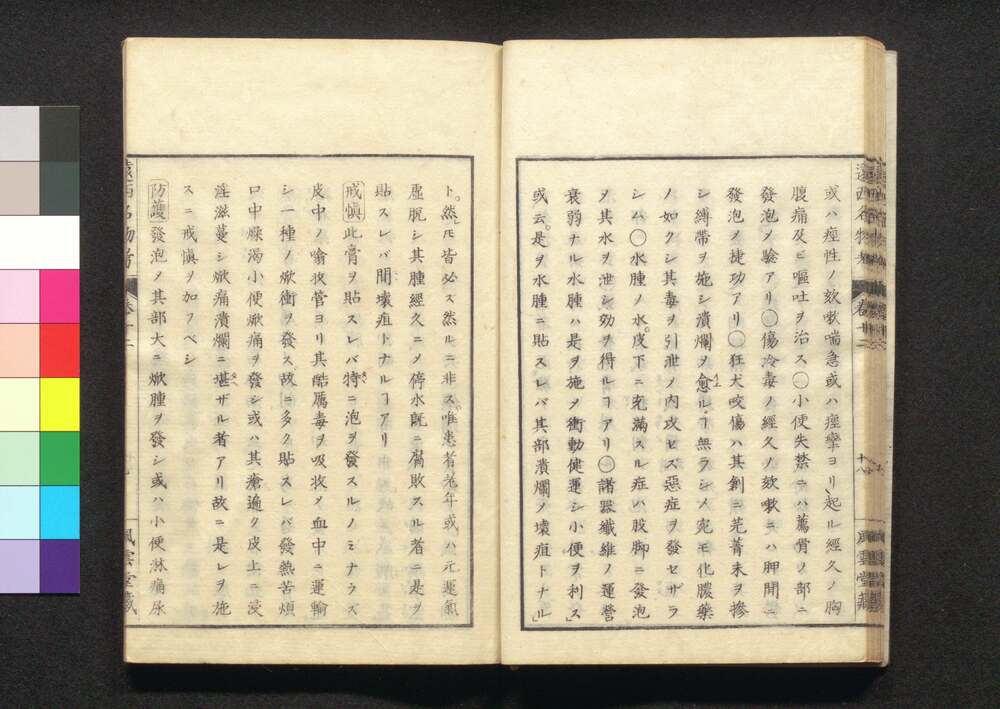 或ハ痙性ノ欬嗽喘急或ハ痙攣ヨリ起ル經久ノ胸
腹痛及ビ嘔吐ヲ治ス○小便失禁ニハ薦骨ノ部ニ
發泡メ驗アリ○傷冷毒ノ經久ノ欬嗽ニハ胛間ニ
發泡メ捷功アリ○狂犬咬傷ハ其創ニ芫菁末ヲ摻
シ縛帶ヲ施シ潰爛メ愈ルヿ無ラシメ宛モ化膿藥
ノ如クシ其毒ヲ引泄メ內攻セズ惡症ヲ發セザラ
シム○水腫ノ水皮下ニ充滿スル症ハ股脚ニ發泡
メ其水ヲ泄シ効ヲ得ルヿアリ○諸器纖維ノ運營
衰弱ナル水腫ハ是ヲ施メ衝動健運シ小便ヲ利ス
或云是ヲ水腫ニ貼スレバ其部潰爛メ壞疽トナル
ト然レ𪜈皆必ズ然ルニ非ス唯患者老年或ハ元運氣
虛脫シ其腫經久ニメ停水既ニ腐敗スル者ニ是ヲ
貼スレバ間壞疽トナルヿアリ
戒愼此膏ヲ貼スレバ特ニ泡ヲ發スルノミナラズ
皮中ノ噏收管ヨリ其酷厲毒ヲ吸收メ血中ニ運輸
シ一種ノ焮衝ヲ發ス故ニ多ク貼スレバ發熱苦煩
口中燥渴小便焮痛ヲ發シ或ハ其瘡遍ク皮上ニ浸
淫滋蔓シ焮痛潰爛ニ堪ザル者アリ故ニ是レヲ施
スニ戒愼ヲ加フベシ
防護發泡メ其部大ニ焮腫ヲ發シ或ハ小便淋痛尿
遠西名物考
卷十二
風雲堂藏